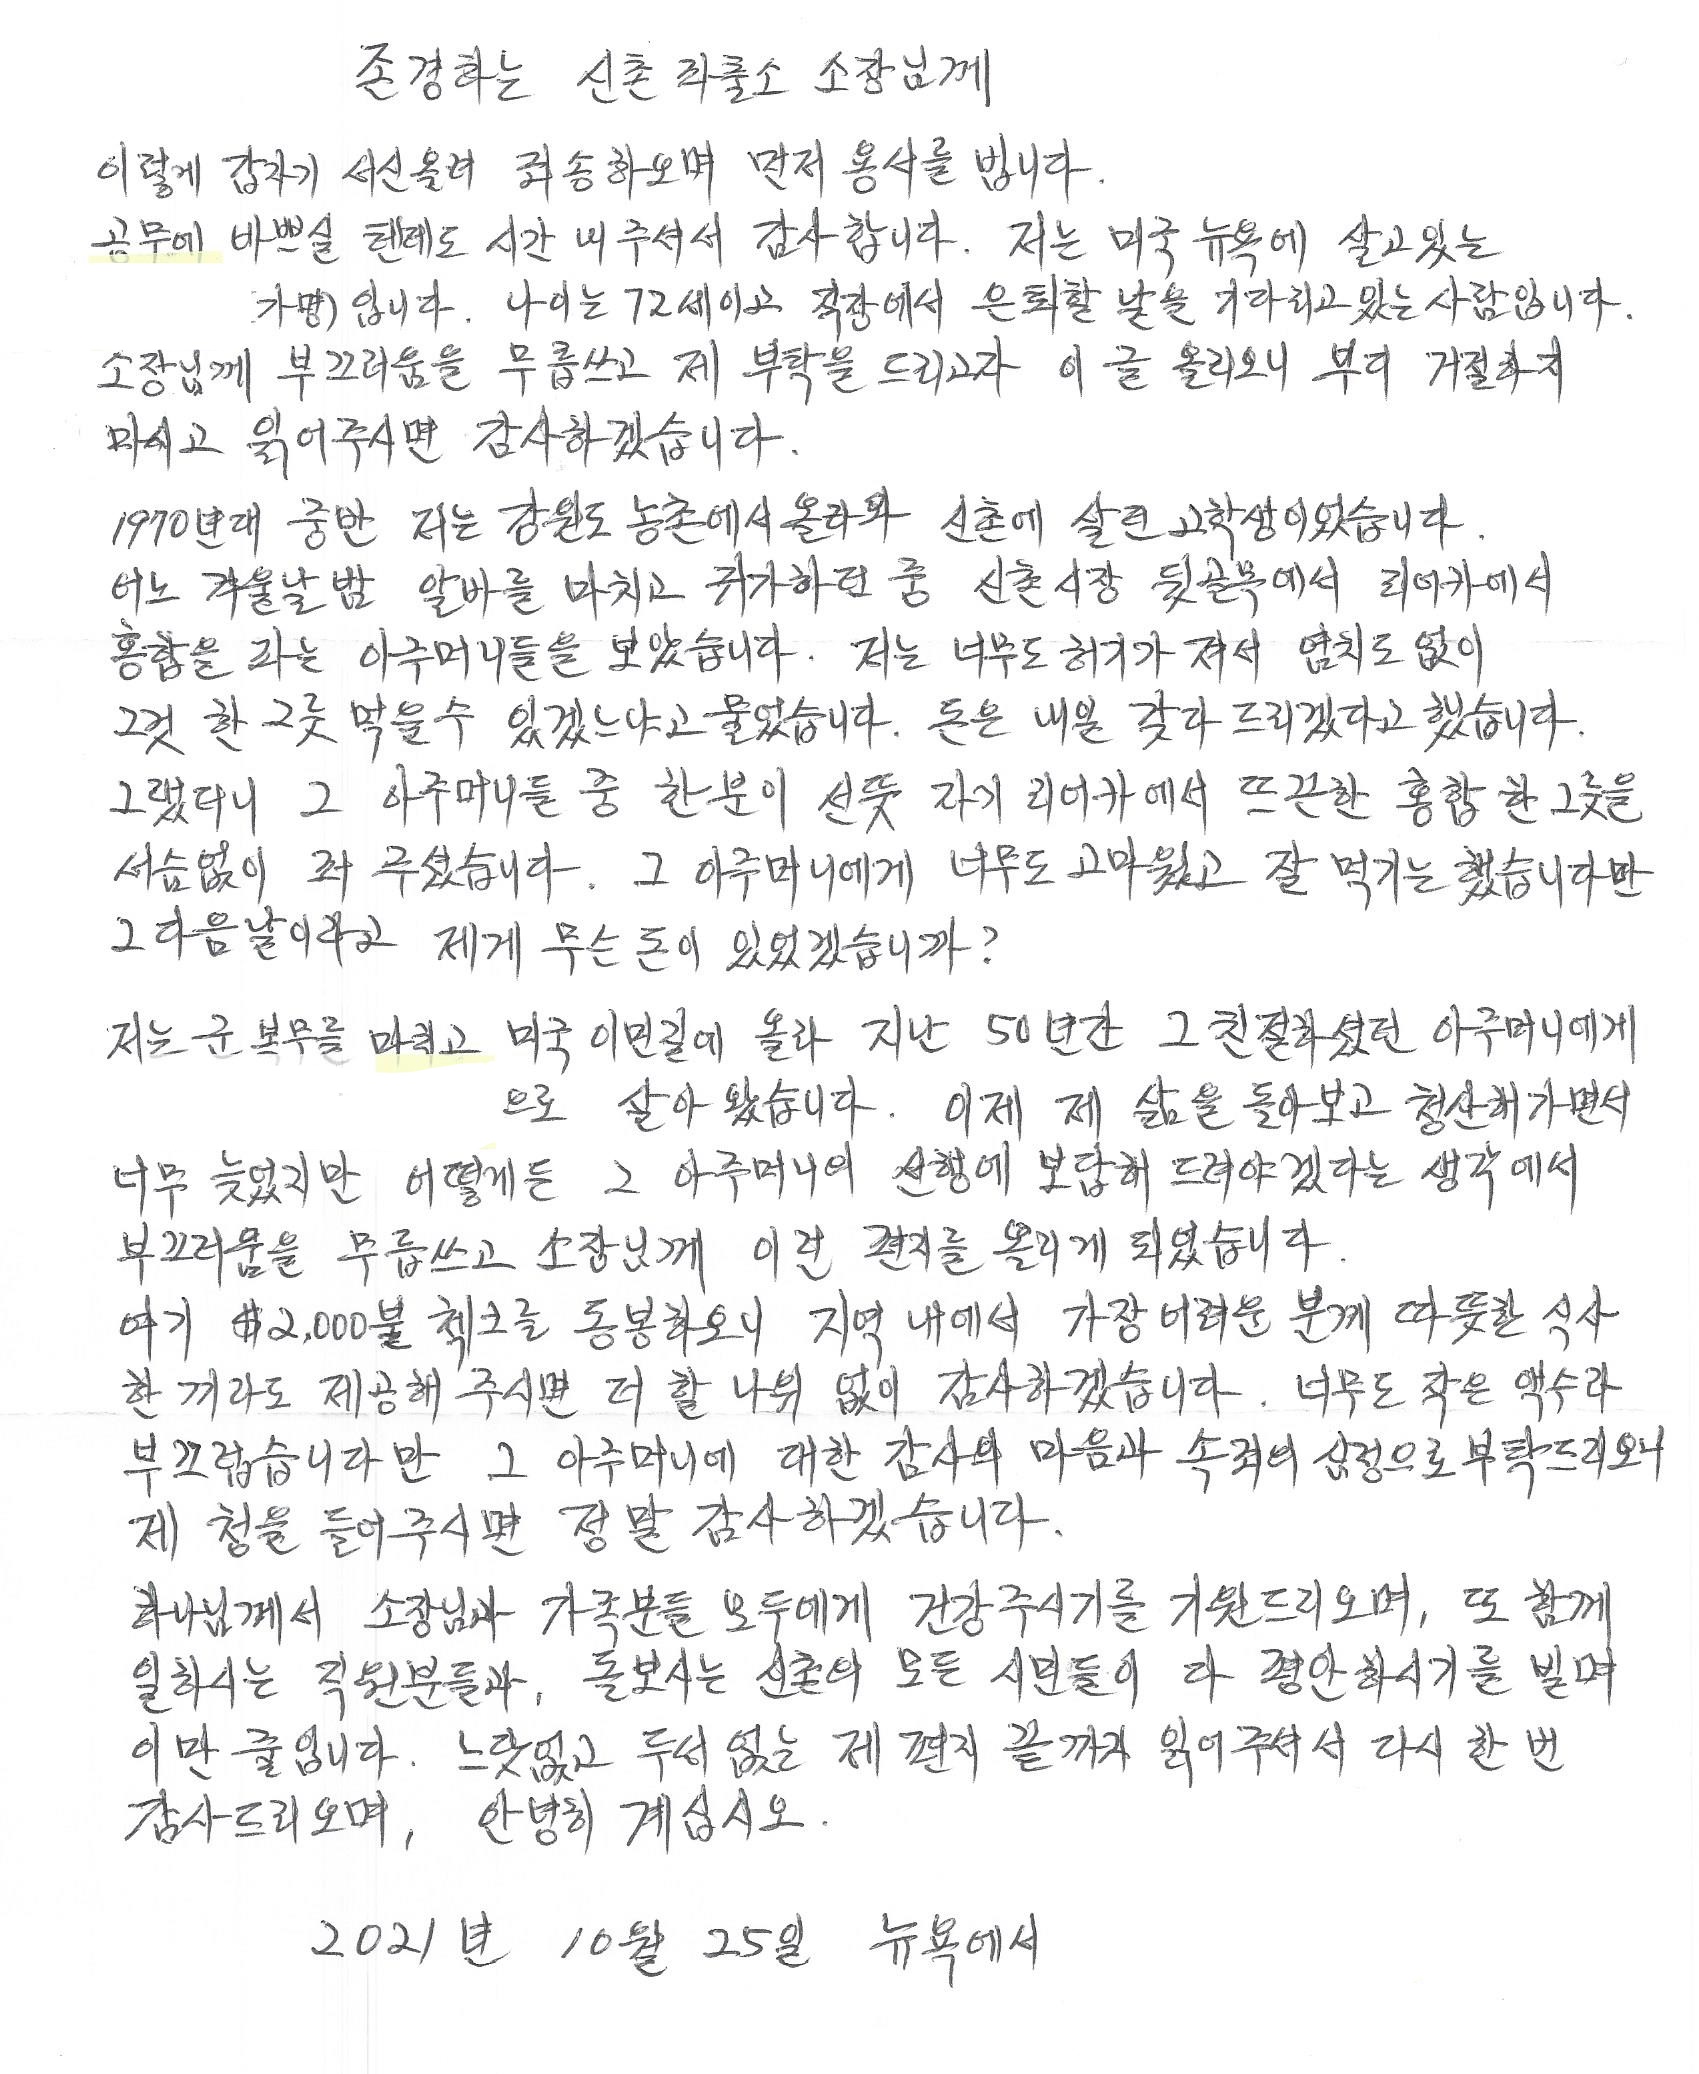 존경하는 신촌 파출소 소장님께
이렇게 갑자기 서신올려 죄송하오며 먼저 용서를 빕니다.
공무에 바쁘실 텐데도 시간 내주셔서 감사합니다. 저는 미국 뉴욕에 살고있는
가명) 입니다. 나이는 72세이고 직장에서 은퇴할 날을 기다리고있는사람입니다.
소장님께 부끄러움을 무릅쓰고 제 부탁을 드리고자 이 글 올리오니 부디 거절하지
마시고 읽어주시면 감사하겠습니다.
1970년대 중반 저는 강원도 농촌에서올라와 신촌에 살던 고학생이었습니다.
어느 겨울날밤 알바를 마치고 귀가하던 중 신촌시장 뒷골목에서 리어카에서
홍합을 파는 아주머니들을 보았습니다. 저는 너무도허기가 져서 염치도없이
그것 한 그릇 먹을수 있겠느냐고물었습니다. 돈은 내일 갖다드리겠다고했습니다.
그랬더니 그 아주머니들 중 한분이 선뜻 자기리어카에서 뜨끈한 홍합 한그릇을
서슴없이 퍼 주셨습니다. 그 아주머니에게 너무도고마웠고 잘 먹기는했습니다만
그다음날이라고 제게 무슨돈이 있었겠습니까?
저는 군복무를 마치고 미국이민길에 올라 지난 50년간 그친절하셨던 아주머니에게
으로 살아왔습니다. 이제 제 삶을 돌아보고 청산해가면서
너무 늦었지만 어떻게든 그 아주머니의 선행에 보답해 드려야겠다는 생각에서
부끄러움을 무릅쓰고 소장님께 이런 편지를 올리게 되었습니다.
여기 $2,000불 첵크를 동봉하오니 지역 내에서 가장어려운 분께 따뜻한 식사
한 끼라도 제공해 주시면 더 할 나위 없이 감사하겠습니다. 너무도 작은 액수라
부끄럽습니다만 그 아주머니에 대한 감사의 마음과 속죄의 심정으로부탁드리오니
제 청을 들어주시면 정말 감사하겠습니다.
하나님께서 소장님과 가족분들 모두에게 건강주시기를 기원드리오며, 또 함께
일하시는 직원분들과, 돌보시는 신촌의 모든 시민들이 다 평안하시기를 빌며
이만 줄입니다. 느닷없고 두서없는 제편지 끝까지 읽어주셔서 다시 한 번
감사드리오며, 안녕히 계십시오.
2021년 10월 25일 뉴욕에서